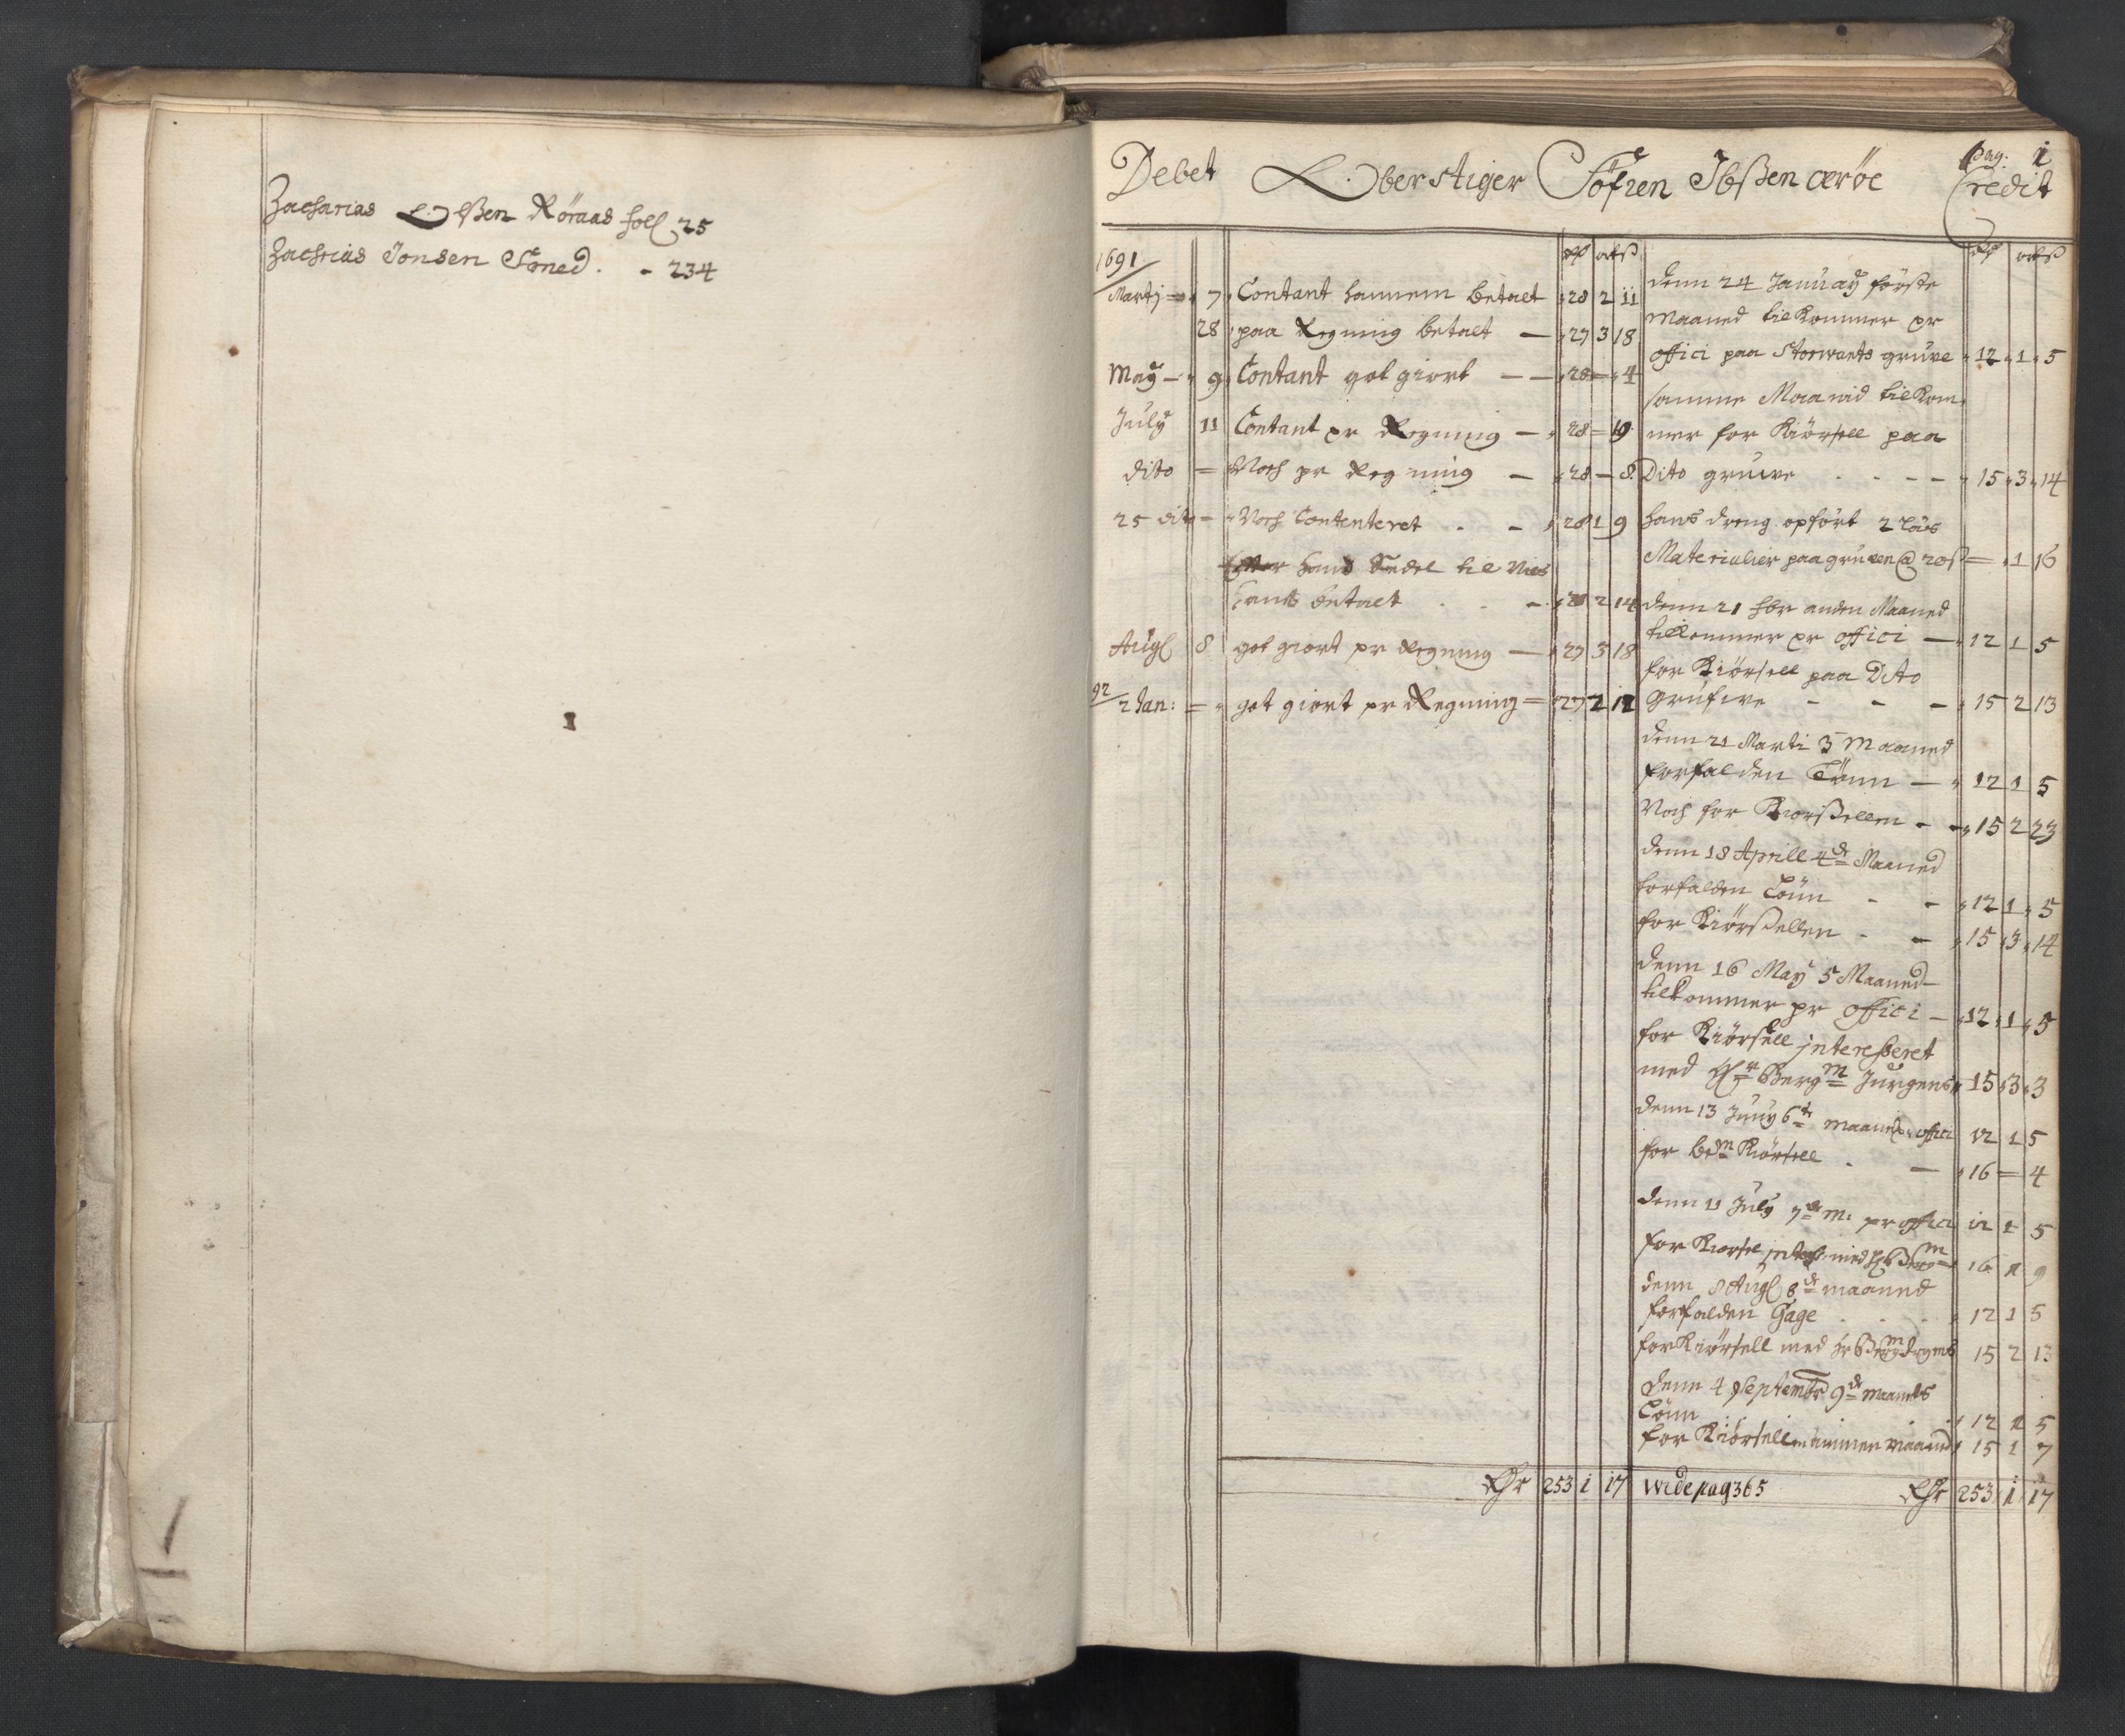 Zacharias Olßen Röraas foll 25
Zachrias Jonsen Smed . - 234
pag. 1
Debet Oberstiger Söfren Ibßen æröe Credit
1691
Martj 7 Contant hannem betalt 28 2 11
28 paa Regning betalt — 27 3 18
May — 9 Contant got giort — — 28 = 4
July 11 Contant pr Regning — 28 = 19
dito = Noch pr Regning — 28 — 8
25 dito = Noch Contenteret . - 28 1 9
Efter hans Sedel til Niels
betalt . . - 2 14
Augl 8 got giort pr Regning — 27 3 18
92
2 Jan: = got giort pr Regning = 27 2 12
Rdr 253 1 17
denn 24 January förste
Maaned tilkommer pr
offici paa Storwarts gruve 12 1 5
samme Maanid tilkom
mer for Kiörsell paa
Dito gruwe . . - - 15 3 14
hans dreng opfört 2 läs
Materialier paa gruven @ 20 ß = 1 16
denn 21 fbr anden Maaned
tilkommer pr offici — 12 1 5
for Kiörsell paa Dito
grufwe - - - 15 2 13
denn 21 Marti 3 Maaned
forfalden Lönn — 12 1 5
Noch for Kiörßellen - - 15 2 23
denn 18 Aprill 4de Maaned
forfalden Lönn - - 12 1 5
for Kiörsellen - - 15 3 14
denn 16 May 5 Maaned
tilkommer pr offici — 12 1 5
for Kiörsell interesseret
med Hr Bergm Jürgens 15 3 3
denn 13 Juny 6te maaned pr offici 12 1 5
for bdm Kiörsell . — 16 = 4
denn 11 July 7de M: pr offici 12 1 5
for Kiörsel med Hr Bergm 16 1 9
denn 8 Augl 8de maaned
forfalden Gage . . . 12 1 5
for Kiörsell med Hr Bergm 15 2 13
denn 4 Septembr 9de maaneds
Lönn . . . 12 1 5
for Kiörsell maaned 15 1 7
vide pag 365 Rdr 253 1 17